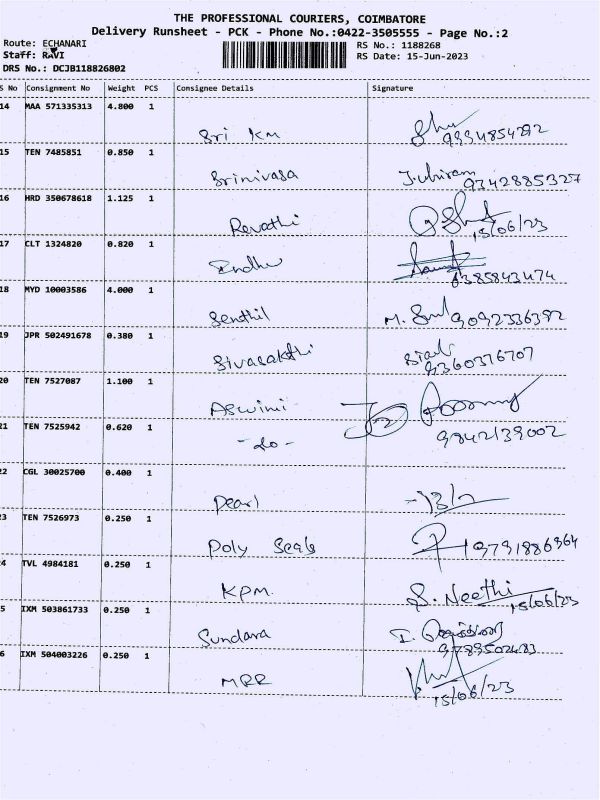 THE PROFESSIONAL COURIERS, COIMBATORE
Delivery Runsheet - PCK - Phone No.:0422-3505555 - Page No.:2
Route: ECHANARI RS No.: 1188268
Staff: RAVI RS Date: 15-Jun-2023
DRS No.: DCJB118826802
S No Consignment No Weight PCS Consignee Details Signature
14 MAA 571335313 4.800 1
Sri KM 9994854292
15 TEN 7485851 0.850 1
Srinivasa 9342885327
16 HRD 350678618 1.125 1
Revathi 15/06/23
17 CLT 1324820 0.820 1
Indhu 6385843474
18 MYD 10003586 4.000 1
Senthil M. 9092336392
19 JPR 502491678 0.380 1
Sivasakthi 9360376707
20 TEN 7527087 1.100 1
Aswini
21 TEN 7525942 0.620 1
-do- 9842139002
22 CGL 30025700 0.400 1
Pearl
23 TEN 7526973 0.250 1
Poly Seals 9791886964
4 TVL 4984181 0.250 1
KPM. S. Neethi
15/06/23
5 IXM 503861733 0.250 1
Sundara 9789502483
6 IXM 504003226 0.250 1
MRR 15/06/23